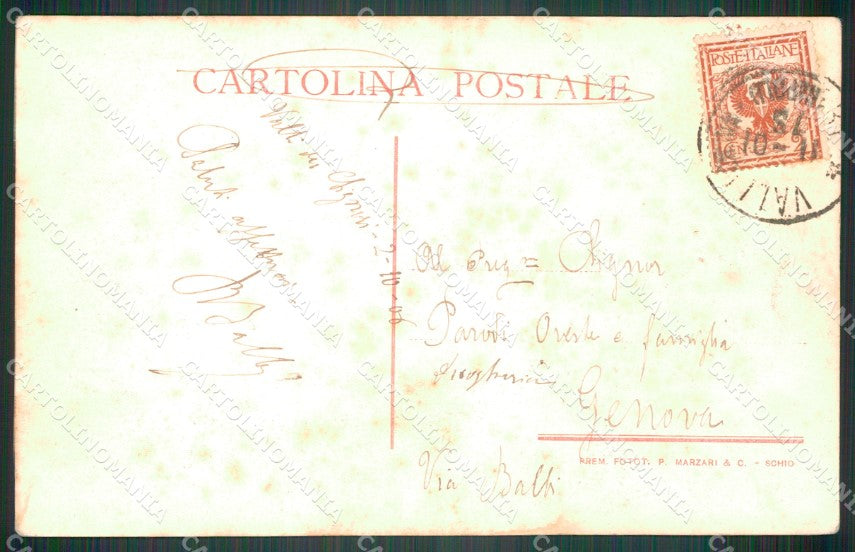 CARTOLINA POSTALE
POSTE ITALIANE
Valli dei Signori - 2-10-06
Saluti affettuosi
B Balbi
Al Preg= Signor
Parodi Oreste e famiglia
Drogheria
Genova
Via Balbi
PREM. FOTOT. P. MARZARI & C. - SCHIO
CARTOLINOMANIA